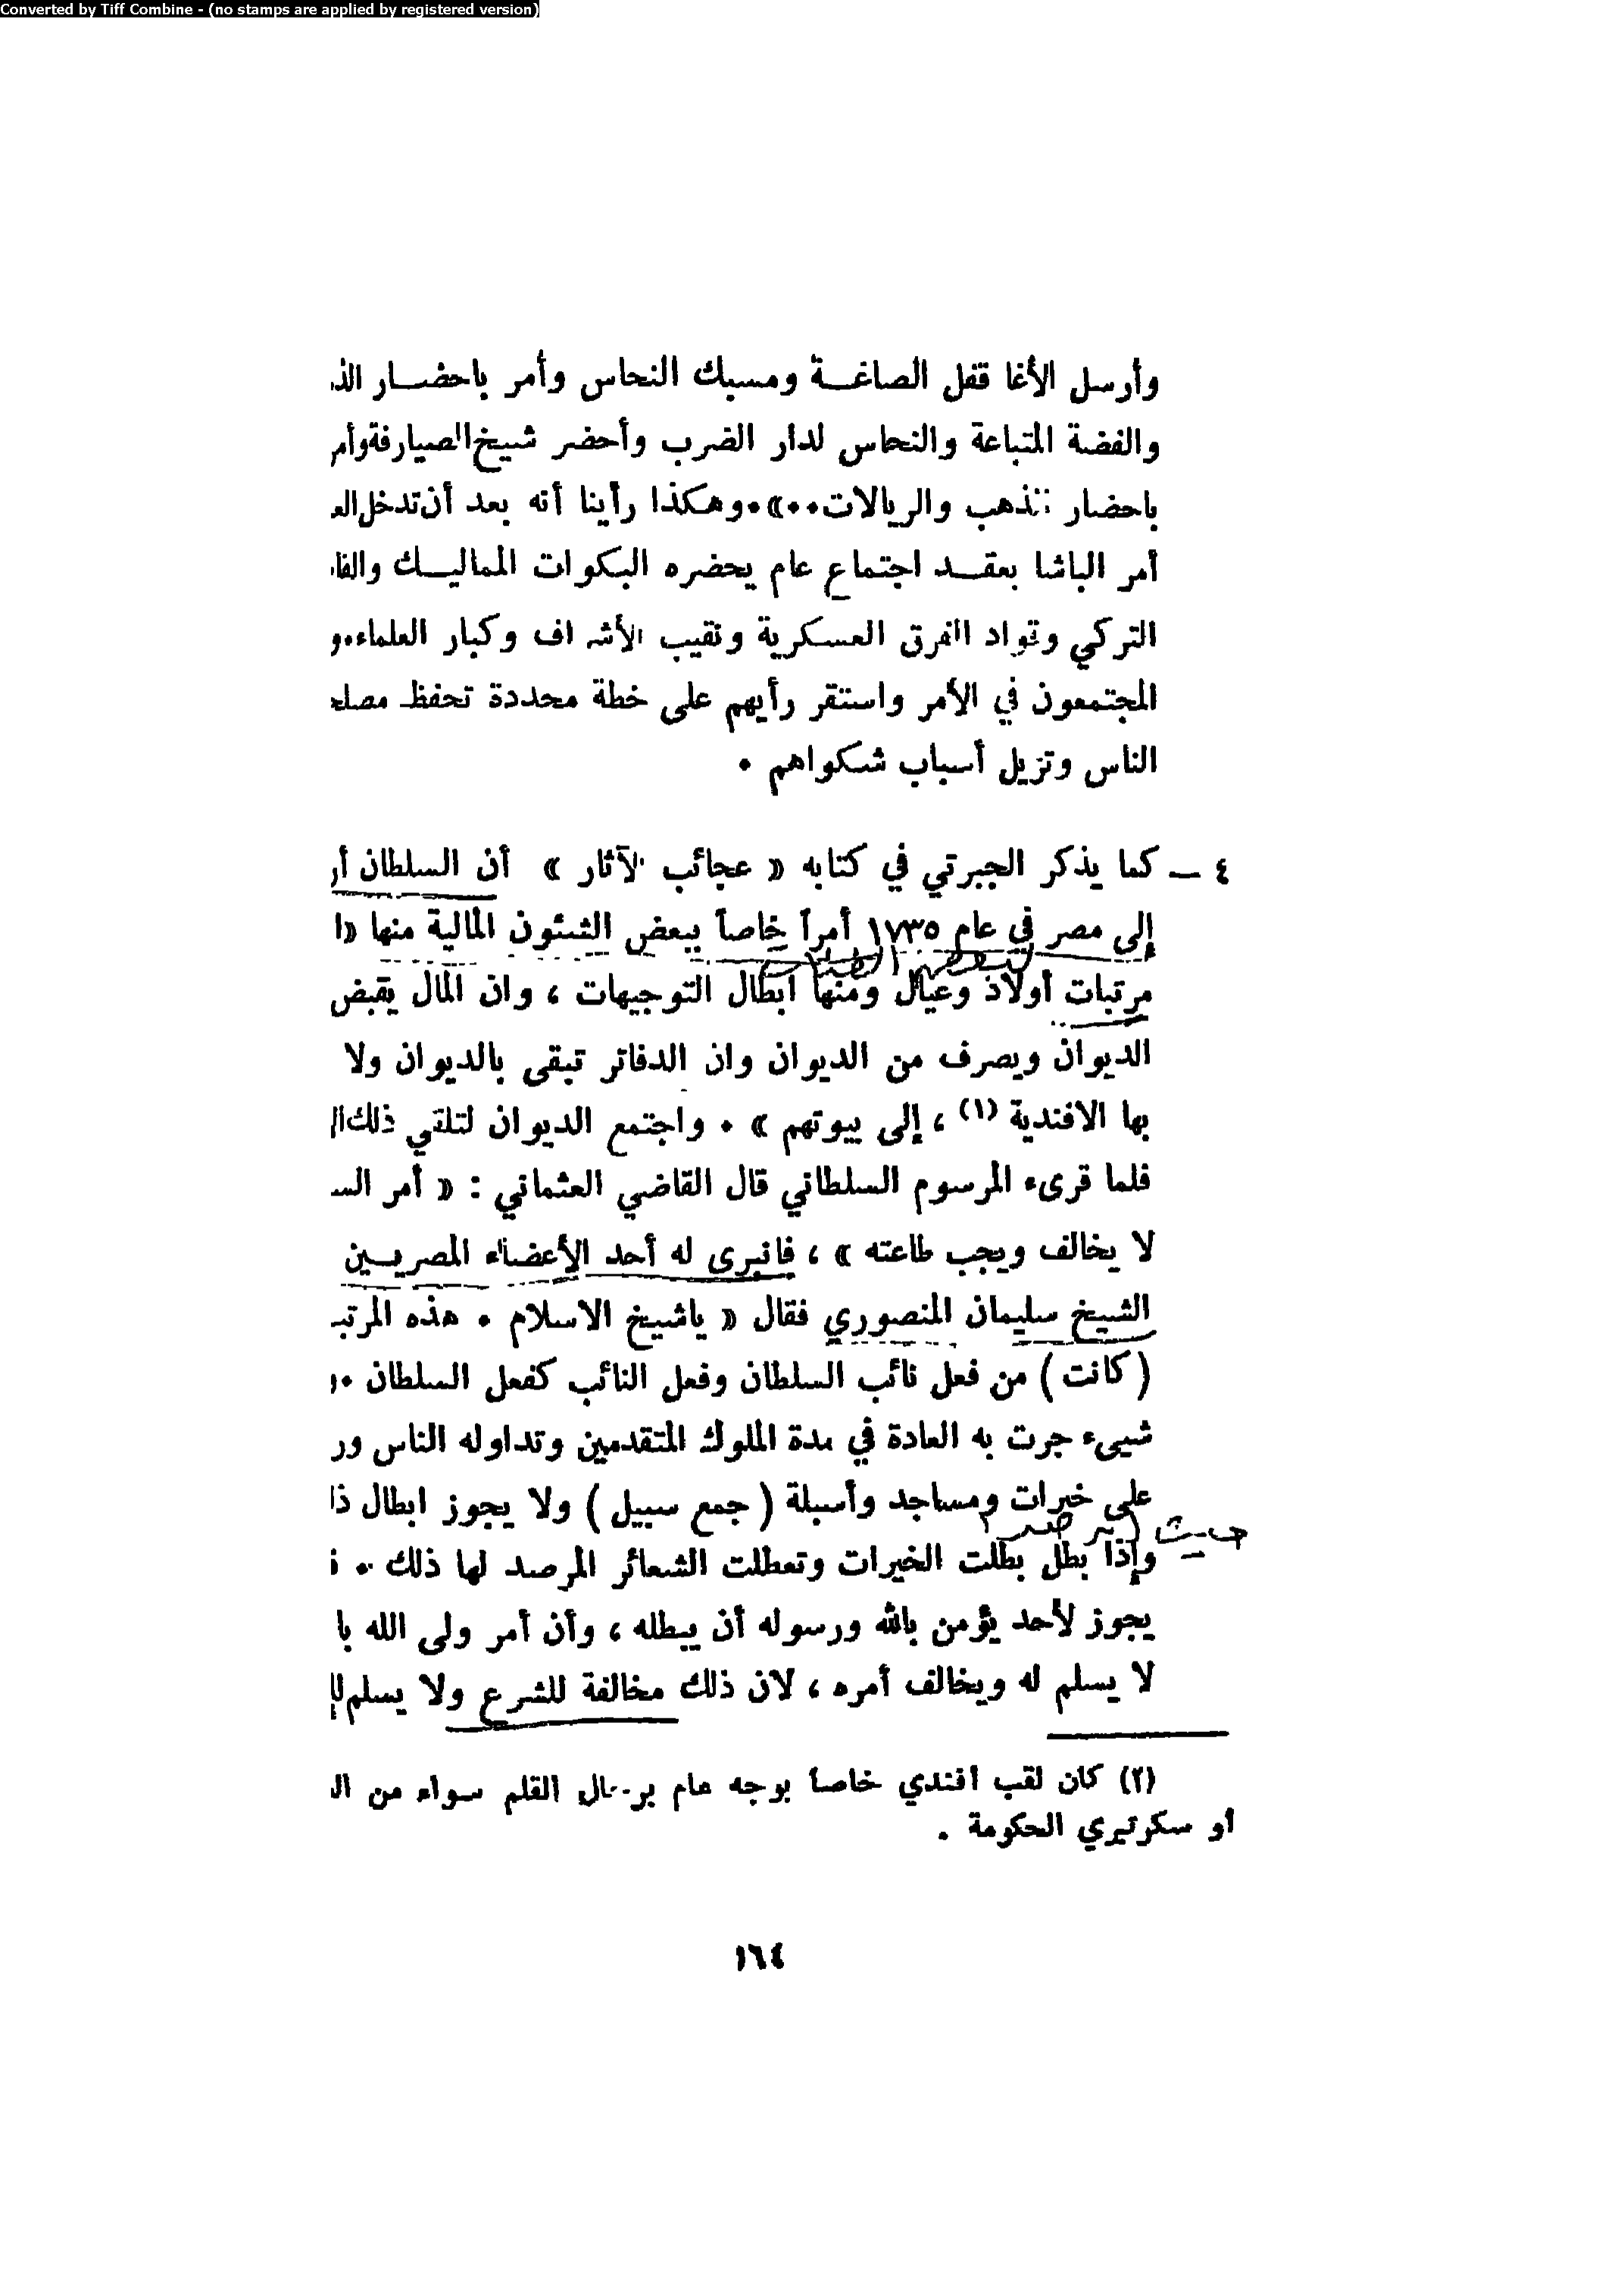 Converted by Tiff Combine - (no stamps are applied by registered version)
وأرسل الأغا قفل الصاغـــة ومسبك النحاس وأمر باحضـــار
والفضة المتباعة والنحاس لدار الضرب وأحضر شيخ الصيارفة وأمر
باحضار الذهب والريالات٠٠»٠وهكذا رأينا أنه بعد أن تدخل
أمر الباشا بعقـــد اجتماع عام يحضره البكوات المماليـــك
التركي وقواد الفرق العسكرية ونقيب الأشراف وكبار العلماء٠و
المجتمعون في الأمر واستقر رأيهم على خطة محددة تحفظ
الناس وتزيل أسباب شكواهم ٠
٤ ــ كما يذكر الجبرتي في كتابه « عجائب الآثار » أن السلطان
إلى مصر في عام ١٧٣٥ أمراً خاصاً ببعض الشئون المالية منها «
مرتبات أولاد وعيال ومنها ابطال التوجيهات ، وان المال يقبض
الديوان ويصرف من الديوان وان الدفاتر تبقى بالديوان ولا
بها الافندية (١) ، إلى بيوتهم » ٠ واجتمع الديوان لتلقي ذلك
فلما قرىء المرسوم السلطاني قال القاضي العثماني : « أمر
لا يخالف ويجب طاعته » ، فانبرى له أحد الأعضاء المصريـــين
الشيخ سليمان المنصوري فقال « ياشيخ الاسلام ٠ هذه
( كانت ) من فعل نائب السلطان وفعل النائب كفعل السلطان ٠
شيىء جرت به العادة في مدة الملوك المتقدمين وتداوله الناس
على خيرات ومساجد وأسبلة ( جمع سبيل ) ولا يجوز ابطال
وإذا بطل بطلت الخيرات وتعطلت الشعائر المرصد لها ذلك ٠٠
يجوز لأحد يؤمن بالله ورسوله أن يبطله ، وأن أمر ولى الله
لا يسلم له ويخالف أمره ، لان ذلك مخالفة للشرع ولا يسلم
(٢) كان لقب افندي خاصا بوجه عام برجال القلم سواء من
أو سكرتيري الحكومة ٠
١٦٤